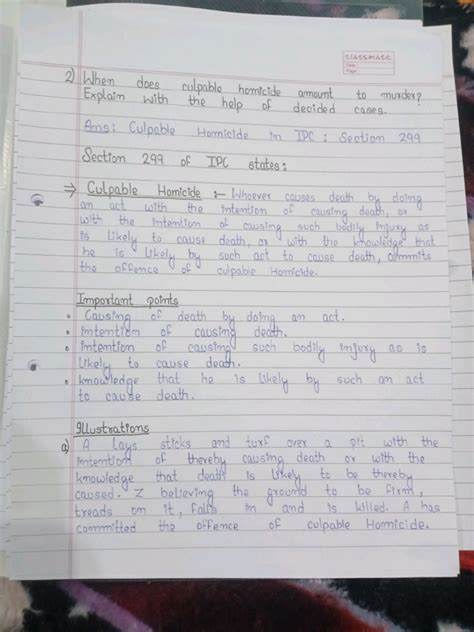 CLASSMATE
Date
Page
2) When does culpable homicide amount to murder?
Explain with the help of decided cases.
Ans: Culpable Homicide in IPC: Section 299
Section 299 of IPC states:
⇒ Culpable Homicide :- Whoever causes death by doing
an act with the intention of causing death, or
with the intention of causing such bodily injury as
is likely to cause death, or with the knowledge that
he is likely by such act to cause death, commits
the offence of culpable Homicide.
Important points
• Causing of death by doing an act.
• intention of causing death.
• intention of causing such bodily injury as is
likely to cause death.
• knowledge that he is likely by such an act
to cause death.
Illustrations
a) A lays sticks and turf over a pit with the
intention of thereby causing death or with the
knowledge that death is likely to be thereby
caused. Z believing the ground to be firm,
treads on it, falls in and is killed. A has
committed the offence of culpable Homicide.